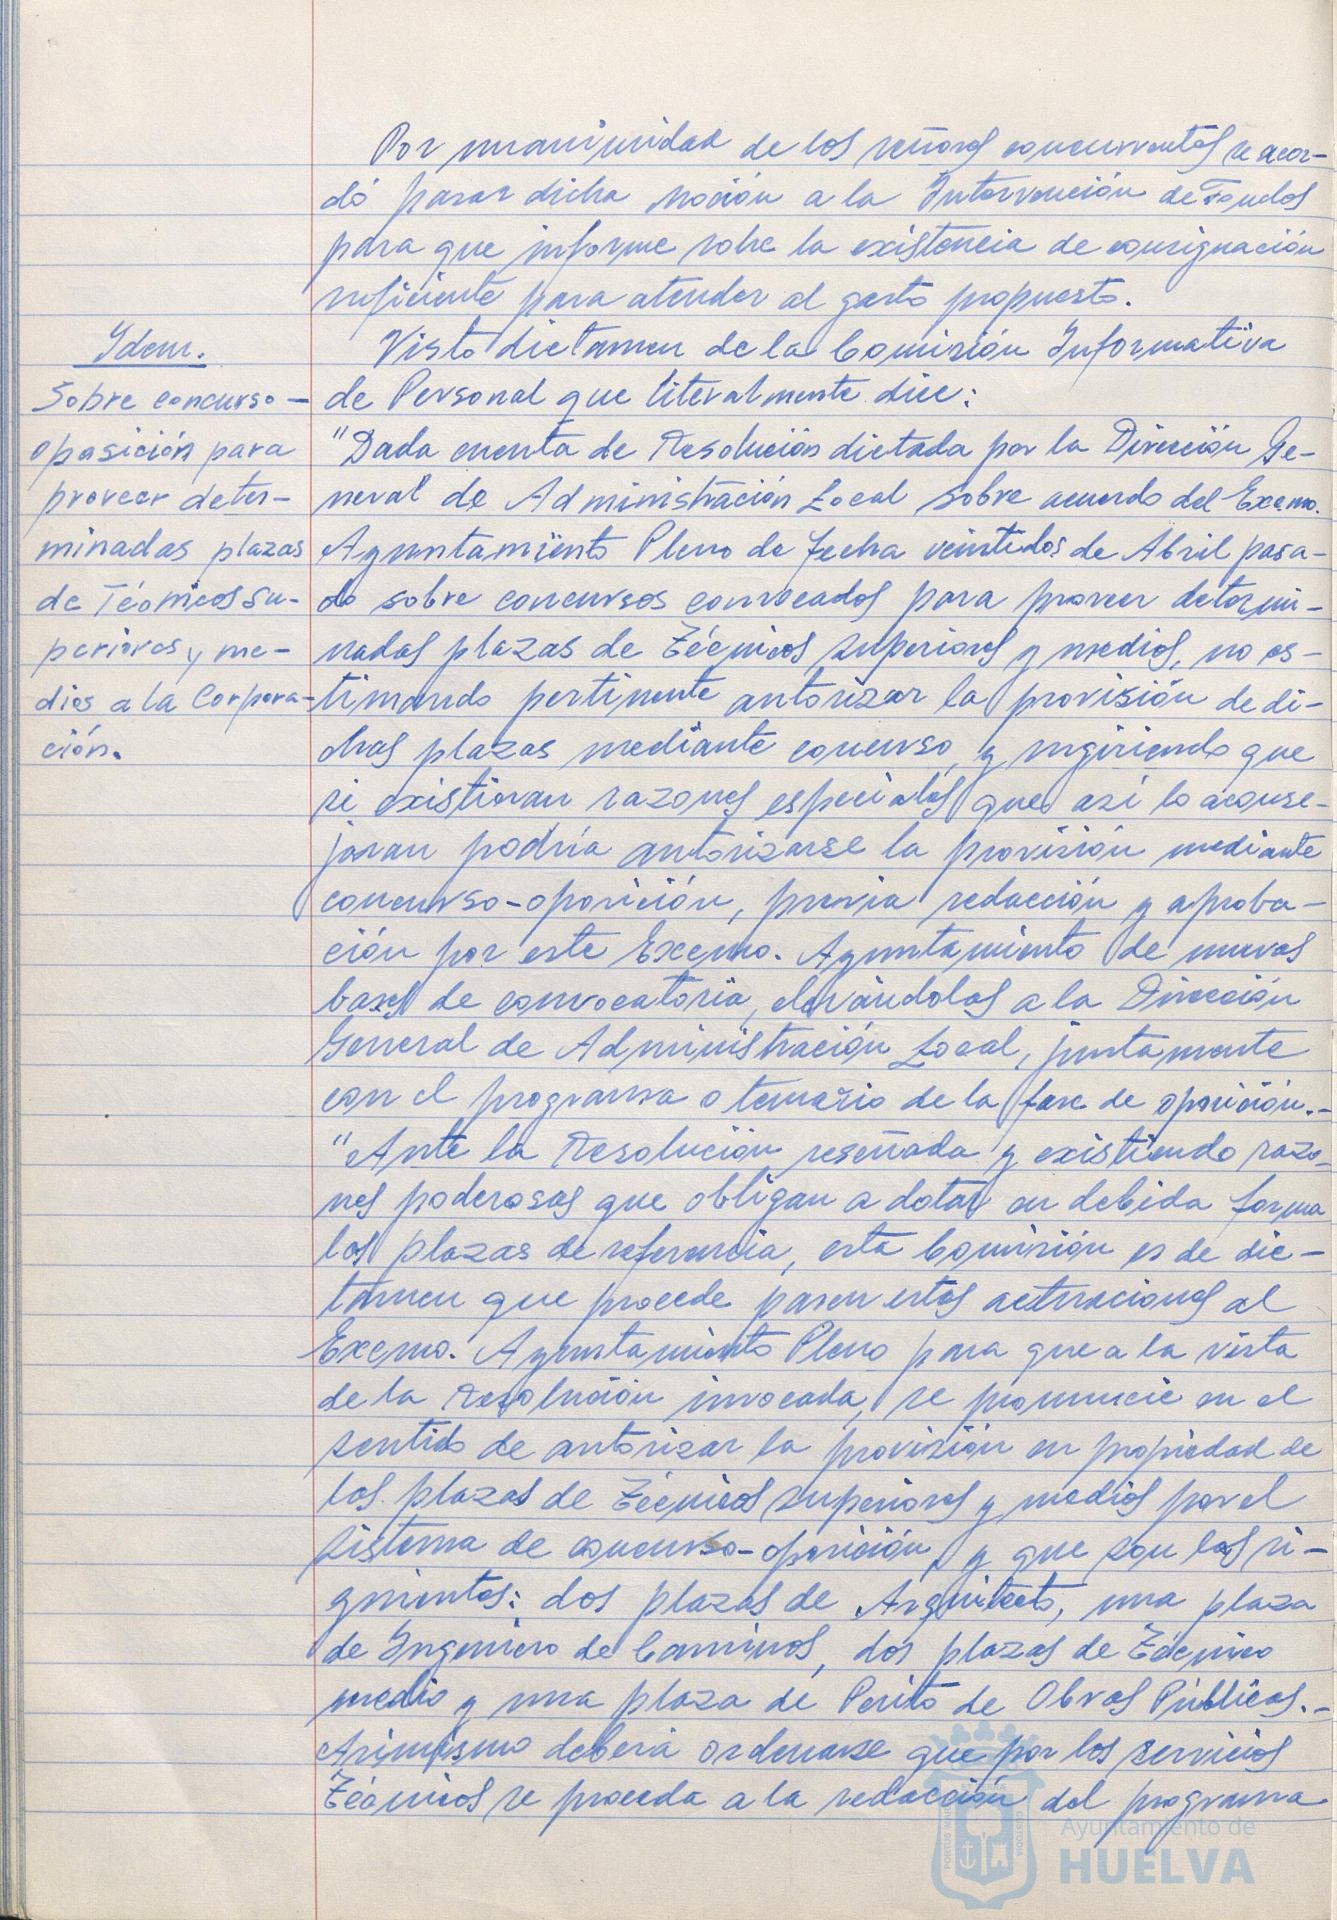 Por unanimidad de los señores concurrentes se acor-
dó pasar dicha moción a la Intervención de Fondos
para que informe sobre la existencia de consignación
suficiente para atender al gasto propuesto.
Idem.
Sobre concurso-
oposición para
proveer deter-
minadas plazas
de Técnicos su-
periores y me-
dios a la Corpora-
ción.
Visto dictamen de la Comisión Informativa
de Personal que literalmente dice:
"Dada cuenta de Resolución dictada por la Dirección Ge-
neral de Administración Local sobre acuerdo del Excmo.
Ayuntamiento Pleno de fecha veintidos de Abril pasa-
do sobre concursos convocados para proveer determi-
nadas plazas de Técnicos superiores y medios, no es-
timando pertinente autorizar la provisión de di-
chas plazas mediante concurso, y sugiriendo que
si existieran razones especiales que así lo aconse-
jaran podría autorizarse la provisión mediante
concurso-oposición, previa redacción y aproba-
ción por este Excmo. Ayuntamiento de nuevas
bases de convocatoria, elevándolas a la Dirección
General de Administración Local, juntamente
con el programa o temario de la fase de oposición.-
"Ante la Resolución reseñada y existiendo razo-
nes poderosas que obligan a dotar en debida forma
las plazas de referencia, esta Comisión es de dic-
tamen que procede pasen estas actuaciones al
Excmo. Ayuntamiento Pleno para que a la vista
de la Resolución invocada, se pronuncie en el
sentido de autorizar la provisión en propiedad de
las plazas de Técnicos superiores y medios por el
sistema de concurso-oposición, y que son las si-
guientes: dos plazas de Arquitecto, una plaza
de Ingeniero de Caminos, dos plazas de Técnico
medio y una plaza de Perito de Obras Públicas.-
Asimismo deberá ordenarse que por los servicios
Técnicos se proceda a la redacción del programa
Ayuntamiento de
HUELVA